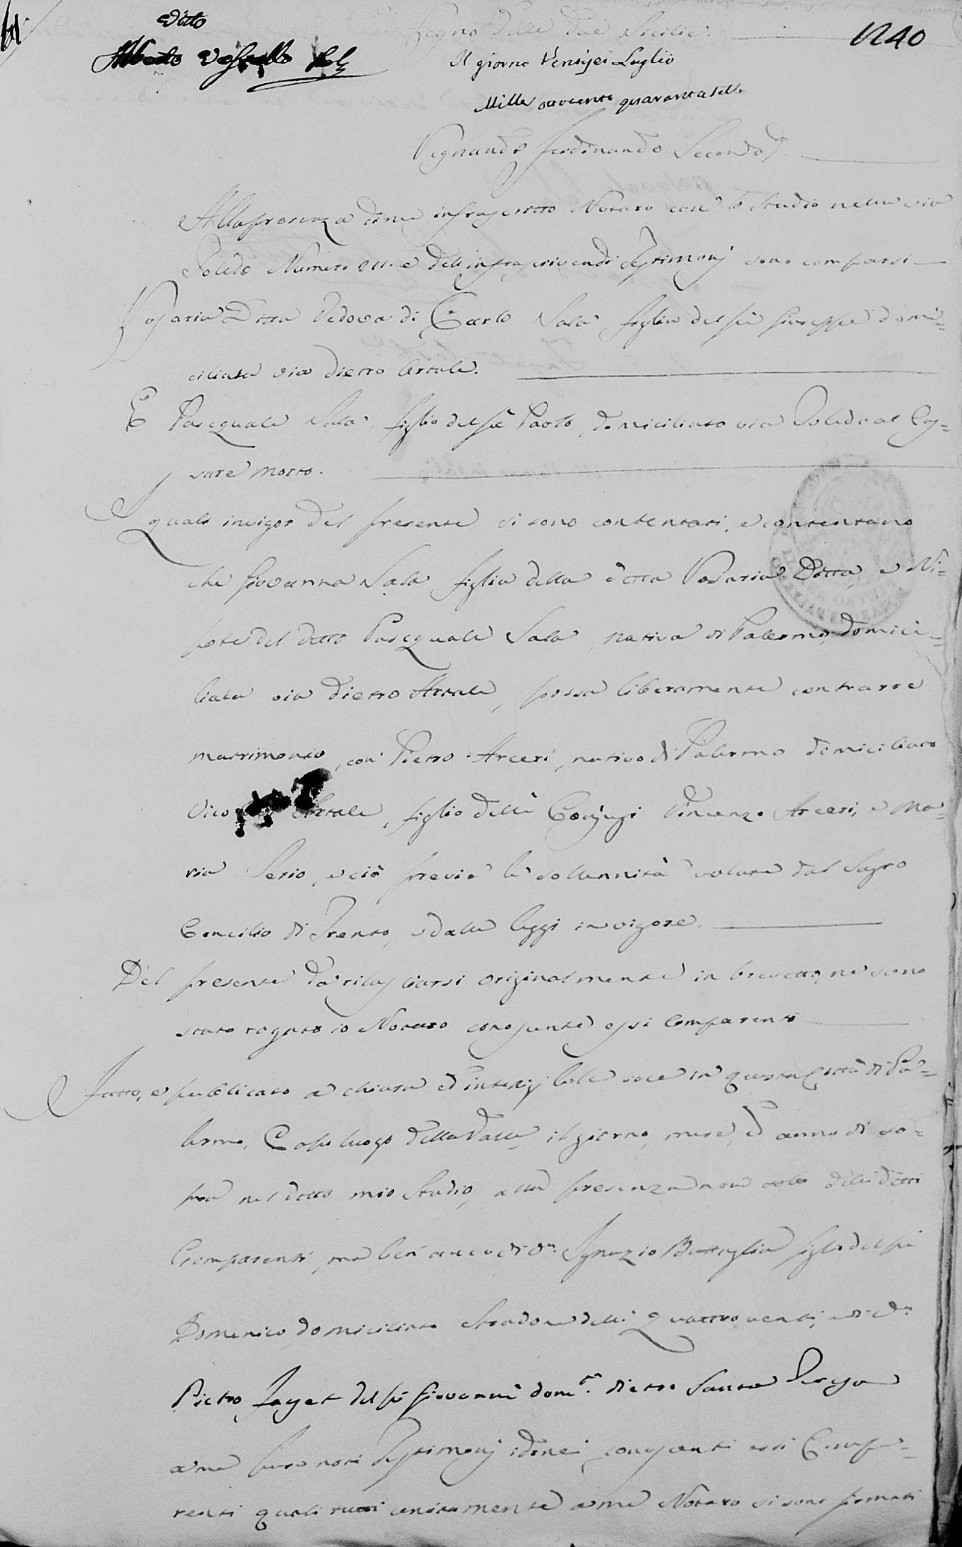 Visto
1240
Regno delle due Sicilie
Il giorno Ventisei Luglio
Mille ottocento quarantasette
Regnando Ferdinando Secondo
Alla presenza di me infrascritto Notaro con lo studio nella via
Toledo Numero e delli infrascrivendi Testimonj sono comparsi
Rosaria Dotta Vedova di Carlo Sala figlia del fù Giuseppe domi-
ciliata via dietro Artale.
E Pasquale Sala figlio del fù Paolo, domiciliato via Toledo al Cas-
saro morto.
Quali in vigor del presente si sono contentati, e contentano
che Giovanna Sala figlia della detta Rosaria Dotta e Ni-
pote del detto Pasquale Sala, nativa di Palermo, domici-
liata via dietro Artale, possa liberamente contrarre
matrimonio, con Pietro Arceri, nativo di Palermo domiciliato
Vico Artale, figlio delli Conjugi Vincenzo Arceri, e Ma-
ria Serio, e ciò previe le sollennità volute dal Sagro
Concilio di Trento, e dalle leggi in vigore.
Del presente da rilasciarsi originalmente in brevetto, ne sono
stato rogato io Notaro conoscente essi Comparenti
Fatto, e pubblicato a chiara ed intelligibile voce in questa Città di Pa-
lermo, Capo luogo della Valle, il giorno, mese, ed anno di so-
pra nel detto mio studio, alla presenza non solo delli detti
Comparenti, ma ben anco di Dn. Ignazio Battaglia figlio del fù
Domenico domiciliato Stradone delli Quattro venti, e di Dn.
Pietro Jayet del fù Giovanni domto. dietro Santa Teresa
a me pure noti Testimonj idonei, conoscenti essi Compa-
renti quali tutti unitamente a me Notaro si sono firmati